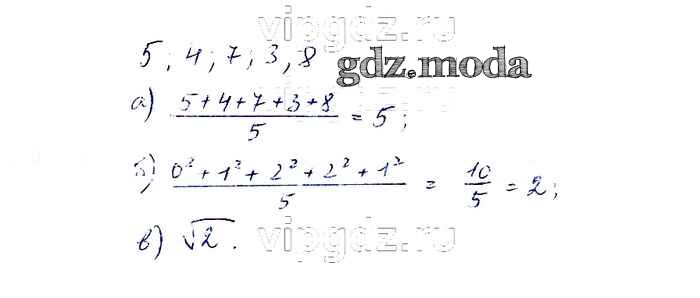 vipgdz.ru
5; 4; 7; 3, 8
gdz.moda
а) (5+4+7+3+8)/5 = 5;
vipgdz.ru
б) (0²+1²+2²+2²+1²)/5 = 10/5 = 2;
в) √2.
vipgdz.ru